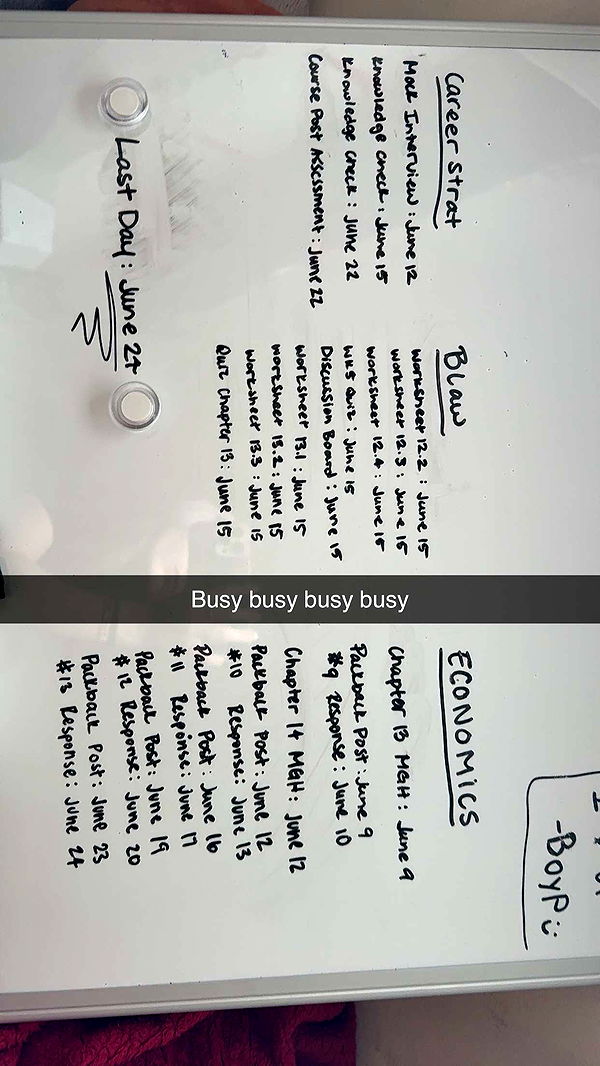 Career Strat
Mock Interview : June 12
Knowledge Check : June 15
Knowledge Check : June 22
Course Post Assessment : June 22
Blaw
Worksheet 12.2 : June 15
Worksheet 12.3 : June 15
Worksheet 12.4 : June 15
WK5 Quiz : June 15
Discussion Board : June 15
Worksheet 13.1 : June 15
Worksheet 13.2 : June 15
Worksheet 13.3 : June 15
Quiz Chapter 13 : June 15
Last Day : June 24
Busy busy busy busy
ECONOMICS
Chapter 13 MGH : June 9
Packback Post : June 9
#9 Response : June 10
Chapter 14 MGH : June 12
Packback Post : June 12
#10 Response : June 13
Packback Post : June 16
#11 Response : June 17
Packback Post : June 19
#12 Response : June 20
Packback Post : June 23
#13 Response : June 24
-BoyP:)